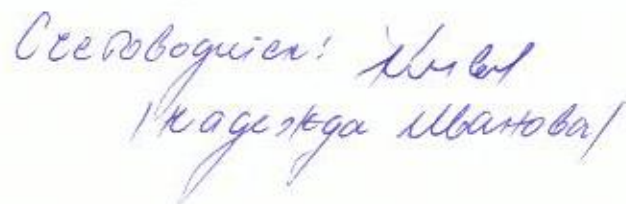 Счетоводител:
/Надежда Иванова/